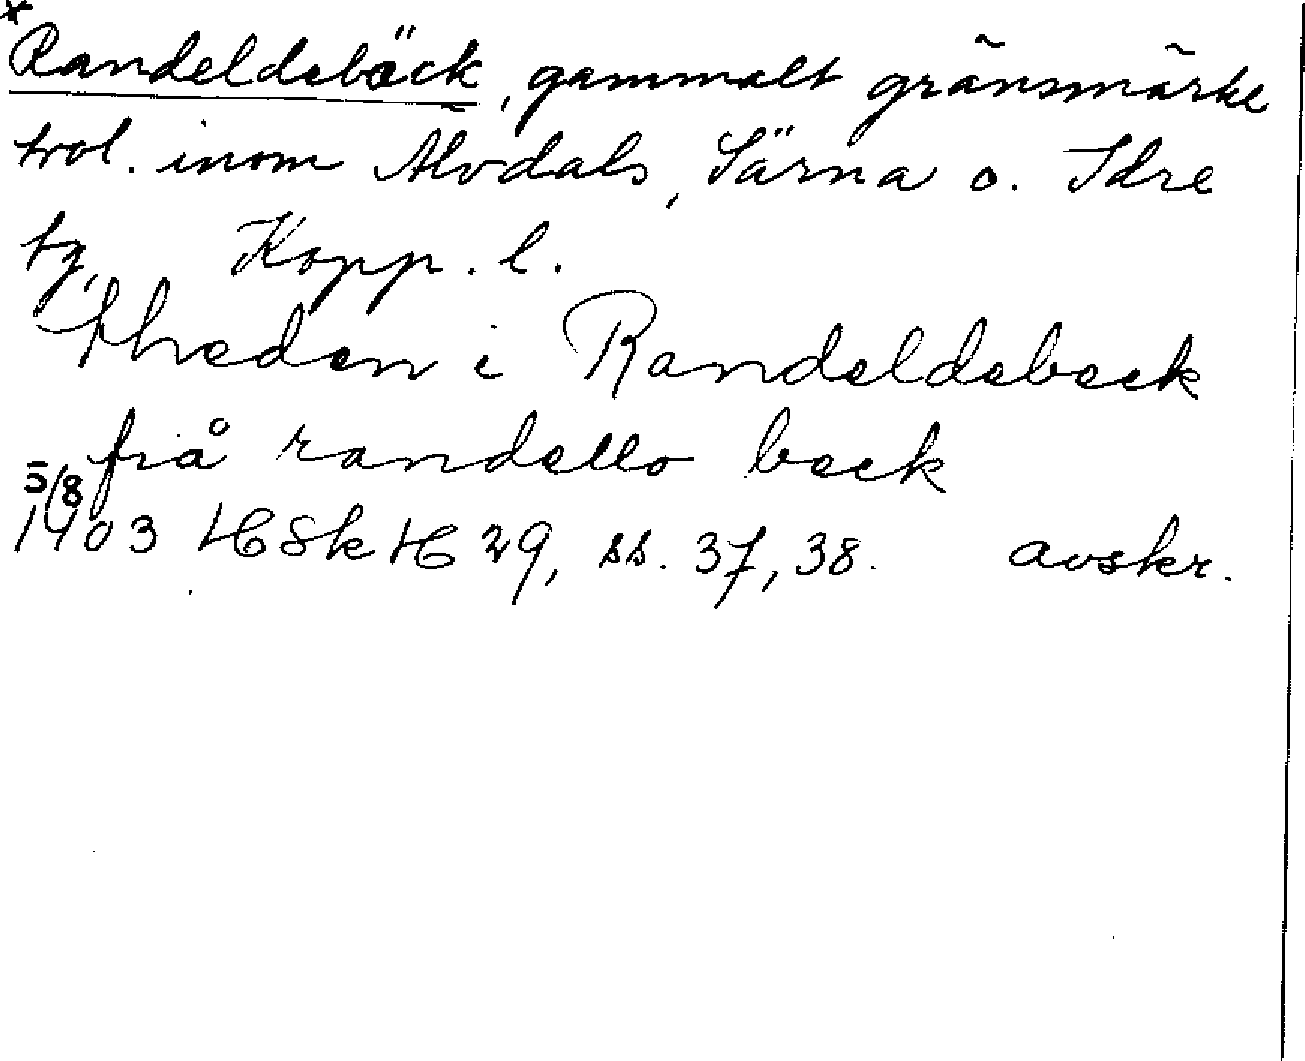 *Randeldebäck, gammalt gränsmärke
trol. inom Älvdals, Särna o. Idre
tg, Kopp. l.
theden i Randeldebeck
frå randello beck
5/8
1403 HSkH 29, ss. 37, 38. avskr.